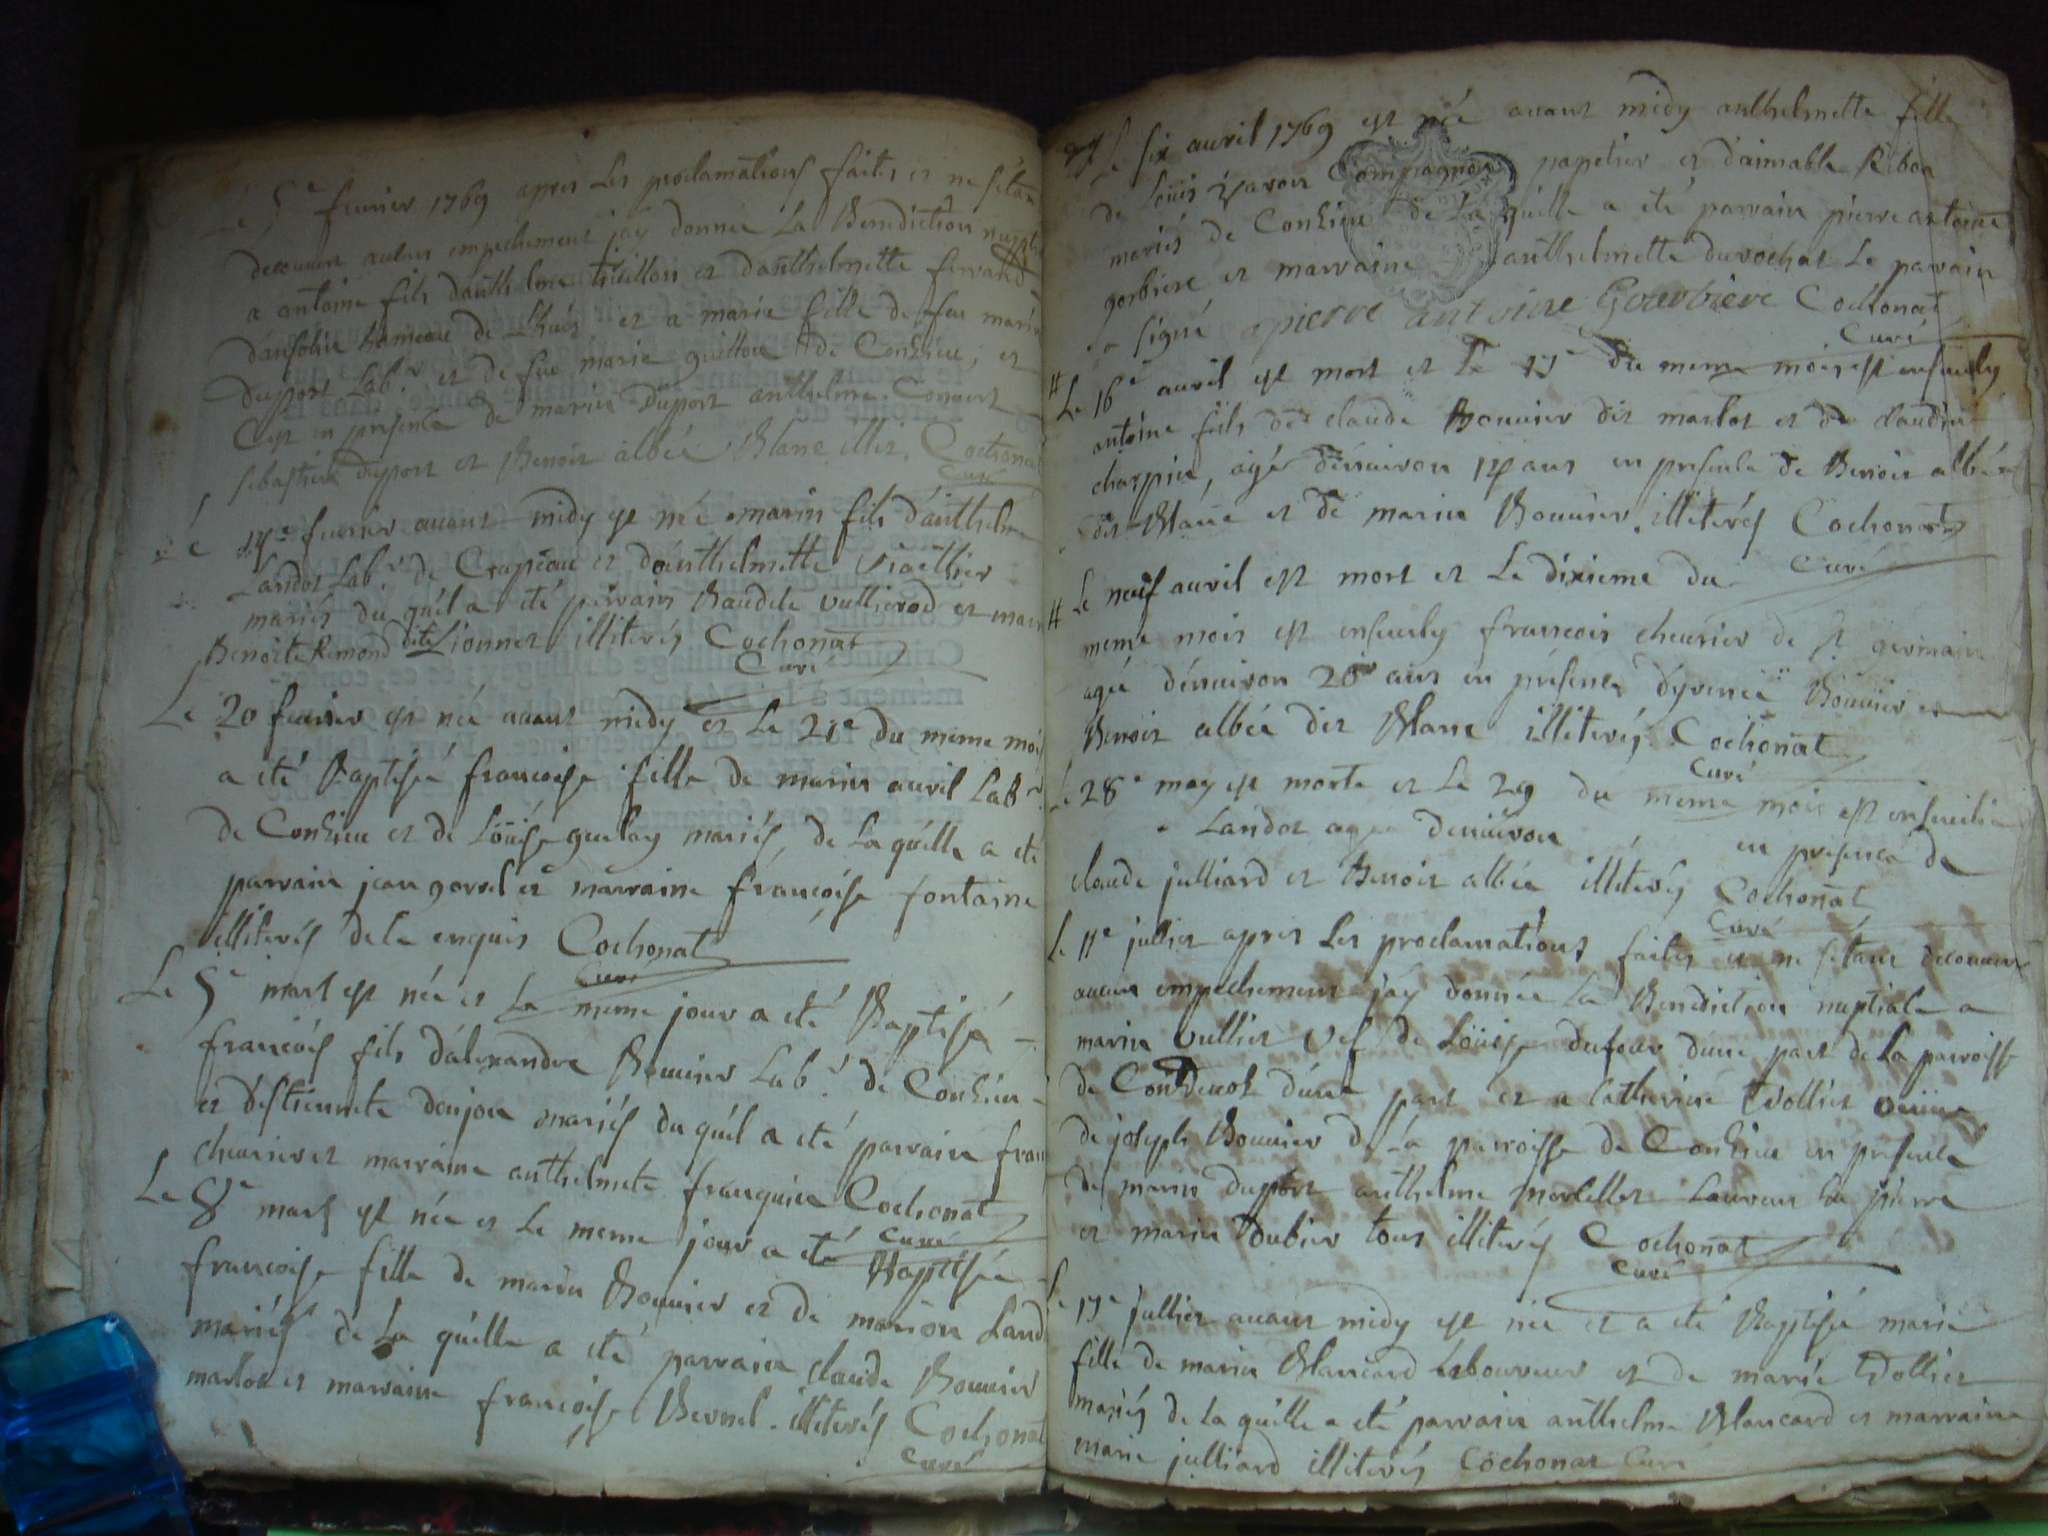 Le 5e feurier 1769 apres les proclamations faites et ne setant
decouuert aucun empechement jay donnée La Benediction nuptiale
a antoine fils danthelme et danthelmette
hameau de et a marie fille de feu marin
Duport Lab.r et de fue marie guillou de Conzieu, et
C'est en presence de marin Duport anthelme
sebastien Duport et Benoit albée Blanc illit. Cochonat
Curé
Le feurier auant midy est né marin fils d'anthelme
Landot Lab.r de Crapéau et d'anthelmette
mariés du quél a eté parrain Baudele et marr
Benoite Remond dite Lionnet illiterés Cochonat
Curé
Le 20 feurier est née auant midy et Le 21e du meme mois
a eté Baptisée francoise fille de marin auril Lab.r
de Conzieu et de Loüise mariés, de La quélle a eté
parrain jean gorrel et marraine francoise fontaine
illiterés de ce enquis Cochonat
Curé
Le 5e mars est née et Le meme jour a eté Baptisé
francois fils d'alexandre Bouuier Lab.r de Conzieu
et d'estiennete donjou mariés du quél a eté parrain fran
cheurier et marraine anthelmete franquine Cochonat
Curé
Le 8e mars est née et Le meme jour a eté Baptisée
francoise fille de marin Bouuier et de marion Land
mariés de La quélle a eté parrain claude Bouuier
marlot et marraine francoise Bernel. illiterés Cochonat
Curé
Le six auril 1769 est née auant midy anthelmette fille
de Loüis yvaron Compagnon papetier et daimable Ribou
mariés de Conzieu de La quélle a eté parrain pierre antoine
gorbiere et marraine anthelmette durochat Le parrain
a signé pierre antoine Gourbiere Cochonat
Curé
Le 16e auril est mort et Le du meme mois est inseuely
antoine fils de claude Bouuier dit marlot et de claudine
charpin, agé dénuiron ans en presence de Benoit albée
dit Blanc et de marin Bouuier. illiterés Cochonat
Curé
Le neuf auril est mort et Le dixieme du
meme mois est inseuely francois cheurier de St germain
agée dénuiron 28 ans en présence d'yrenée Bouuier et
Benoit albée dit Blanc illiterés Cochonat
Curé
Le 28e may est morte et Le 29 du meme mois est inseuelie
Landot agee denuiron en presence de
claude julliard et Benoit albée illiterés Cochonat
Curé
Le 11e jullier apres Les proclamations faites et ne setant decouuert
aucun empechement jay donnée La Benediction nuptiale a
marin vullier vef de Loüise dufour dune part de La paroisse
de d'une part et a Catherine Tollier veuue
de joseph Bouuier de La parroisse de Conzieu en presence
de marin Duport anthelme morcellet Laurent La pierre
et marin Dubier tous illiterés Cochonat
Curé
Le 17e jullier auant midy est née et a eté Baptisée marie
fille de marin Blancard Laboureur et de marie Tollier
mariés de La quélle a eté parrain anthelme Blancard et marraine
marie julliard illiterés Cochonat Curé